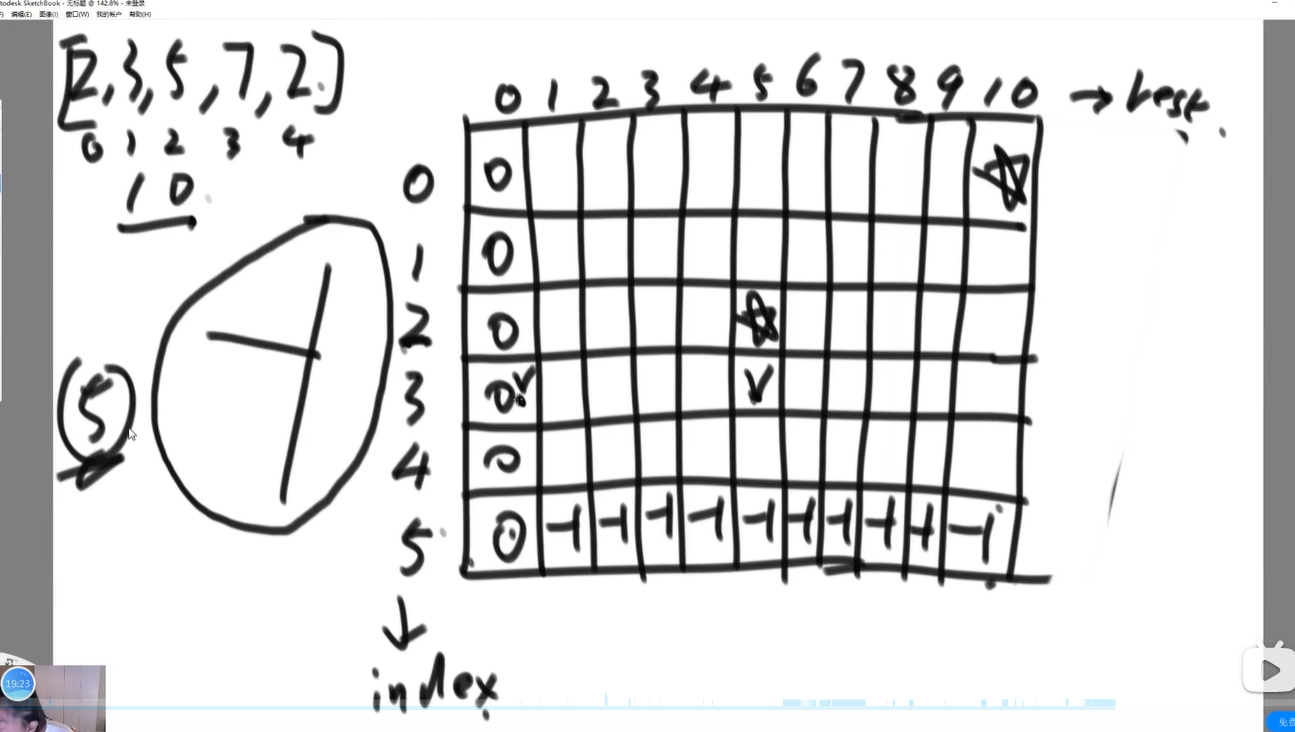 todesk SketchBook - 无标题 @ 142.8% - 未登录
编辑(E) 图像(I) 窗口(W) 我的帐户 帮助(H)
[2,3,5,7,2]
0 1 2 3 4
10
0 1 2 3 4 5 6 7 8 9 10 → rest
0 0
1 0
2 0
3 0
4 0
5 0 -1 -1 -1 -1 -1 -1 -1 -1 -1 -1
5
index
19:23
免费